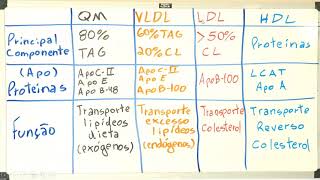 QM VLDL LDL HDL
Principal Componente 80% TAG 60% TAG 20% CL >50% CL Proteínas
(Apo) Proteínas ApoC-II Apo E Apo B-48 Apo C-II Apo E Apo B-100 ApoB-100 LCAT Apo A
Função Transporte lipídeos dieta (exógenos) Transporte excesso lipídeos (endógenos) Transporte Colesterol Transporte Reverso Colesterol